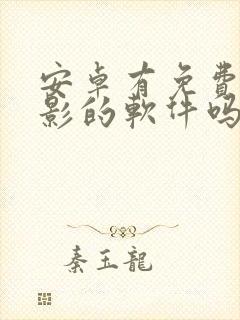 安卓有免費
影的軟件嗎
秦玉龍